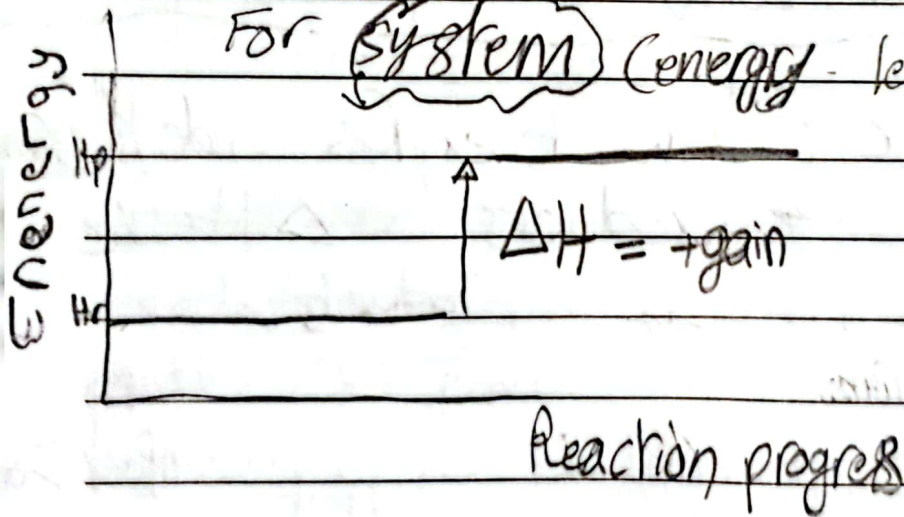 For system (energy - le
Energy
Hp
ΔH = +gain
Hr
Reaction progress